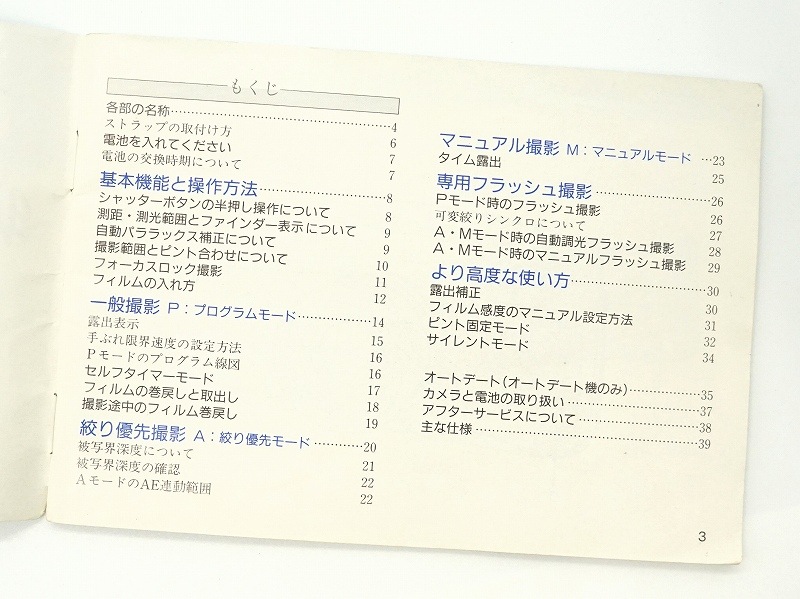 もくじ
各部の名称……4
ストラップの取付け方 6
電池を入れてください 7
電池の交換時期について 7
基本機能と操作方法……8
シャッターボタンの半押し操作について 8
測距・測光範囲とファインダー表示について 9
自動パララックス補正について 9
撮影範囲とピント合わせについて 10
フォーカスロック撮影 11
フィルムの入れ方 12
一般撮影 P:プログラムモード……14
露出表示 15
手ぶれ限界速度の設定方法 16
Pモードのプログラム線図 16
セルフタイマーモード 17
フィルムの巻戻しと取出し 18
撮影途中のフィルム巻戻し 19
絞り優先撮影 A:絞り優先モード……20
被写界深度について 21
被写界深度の確認 22
AモードのAE連動範囲 22
マニュアル撮影 M:マニュアルモード…23
タイム露出 25
専用フラッシュ撮影……26
Pモード時のフラッシュ撮影 26
可変絞りシンクロについて 27
A・Mモード時の自動調光フラッシュ撮影 28
A・Mモード時のマニュアルフラッシュ撮影 29
より高度な使い方……30
露出補正 30
フィルム感度のマニュアル設定方法 31
ピント固定モード 32
サイレントモード 34
オートデート(オートデート機のみ)……35
カメラと電池の取り扱い……37
アフターサービスについて……38
主な仕様……39
3